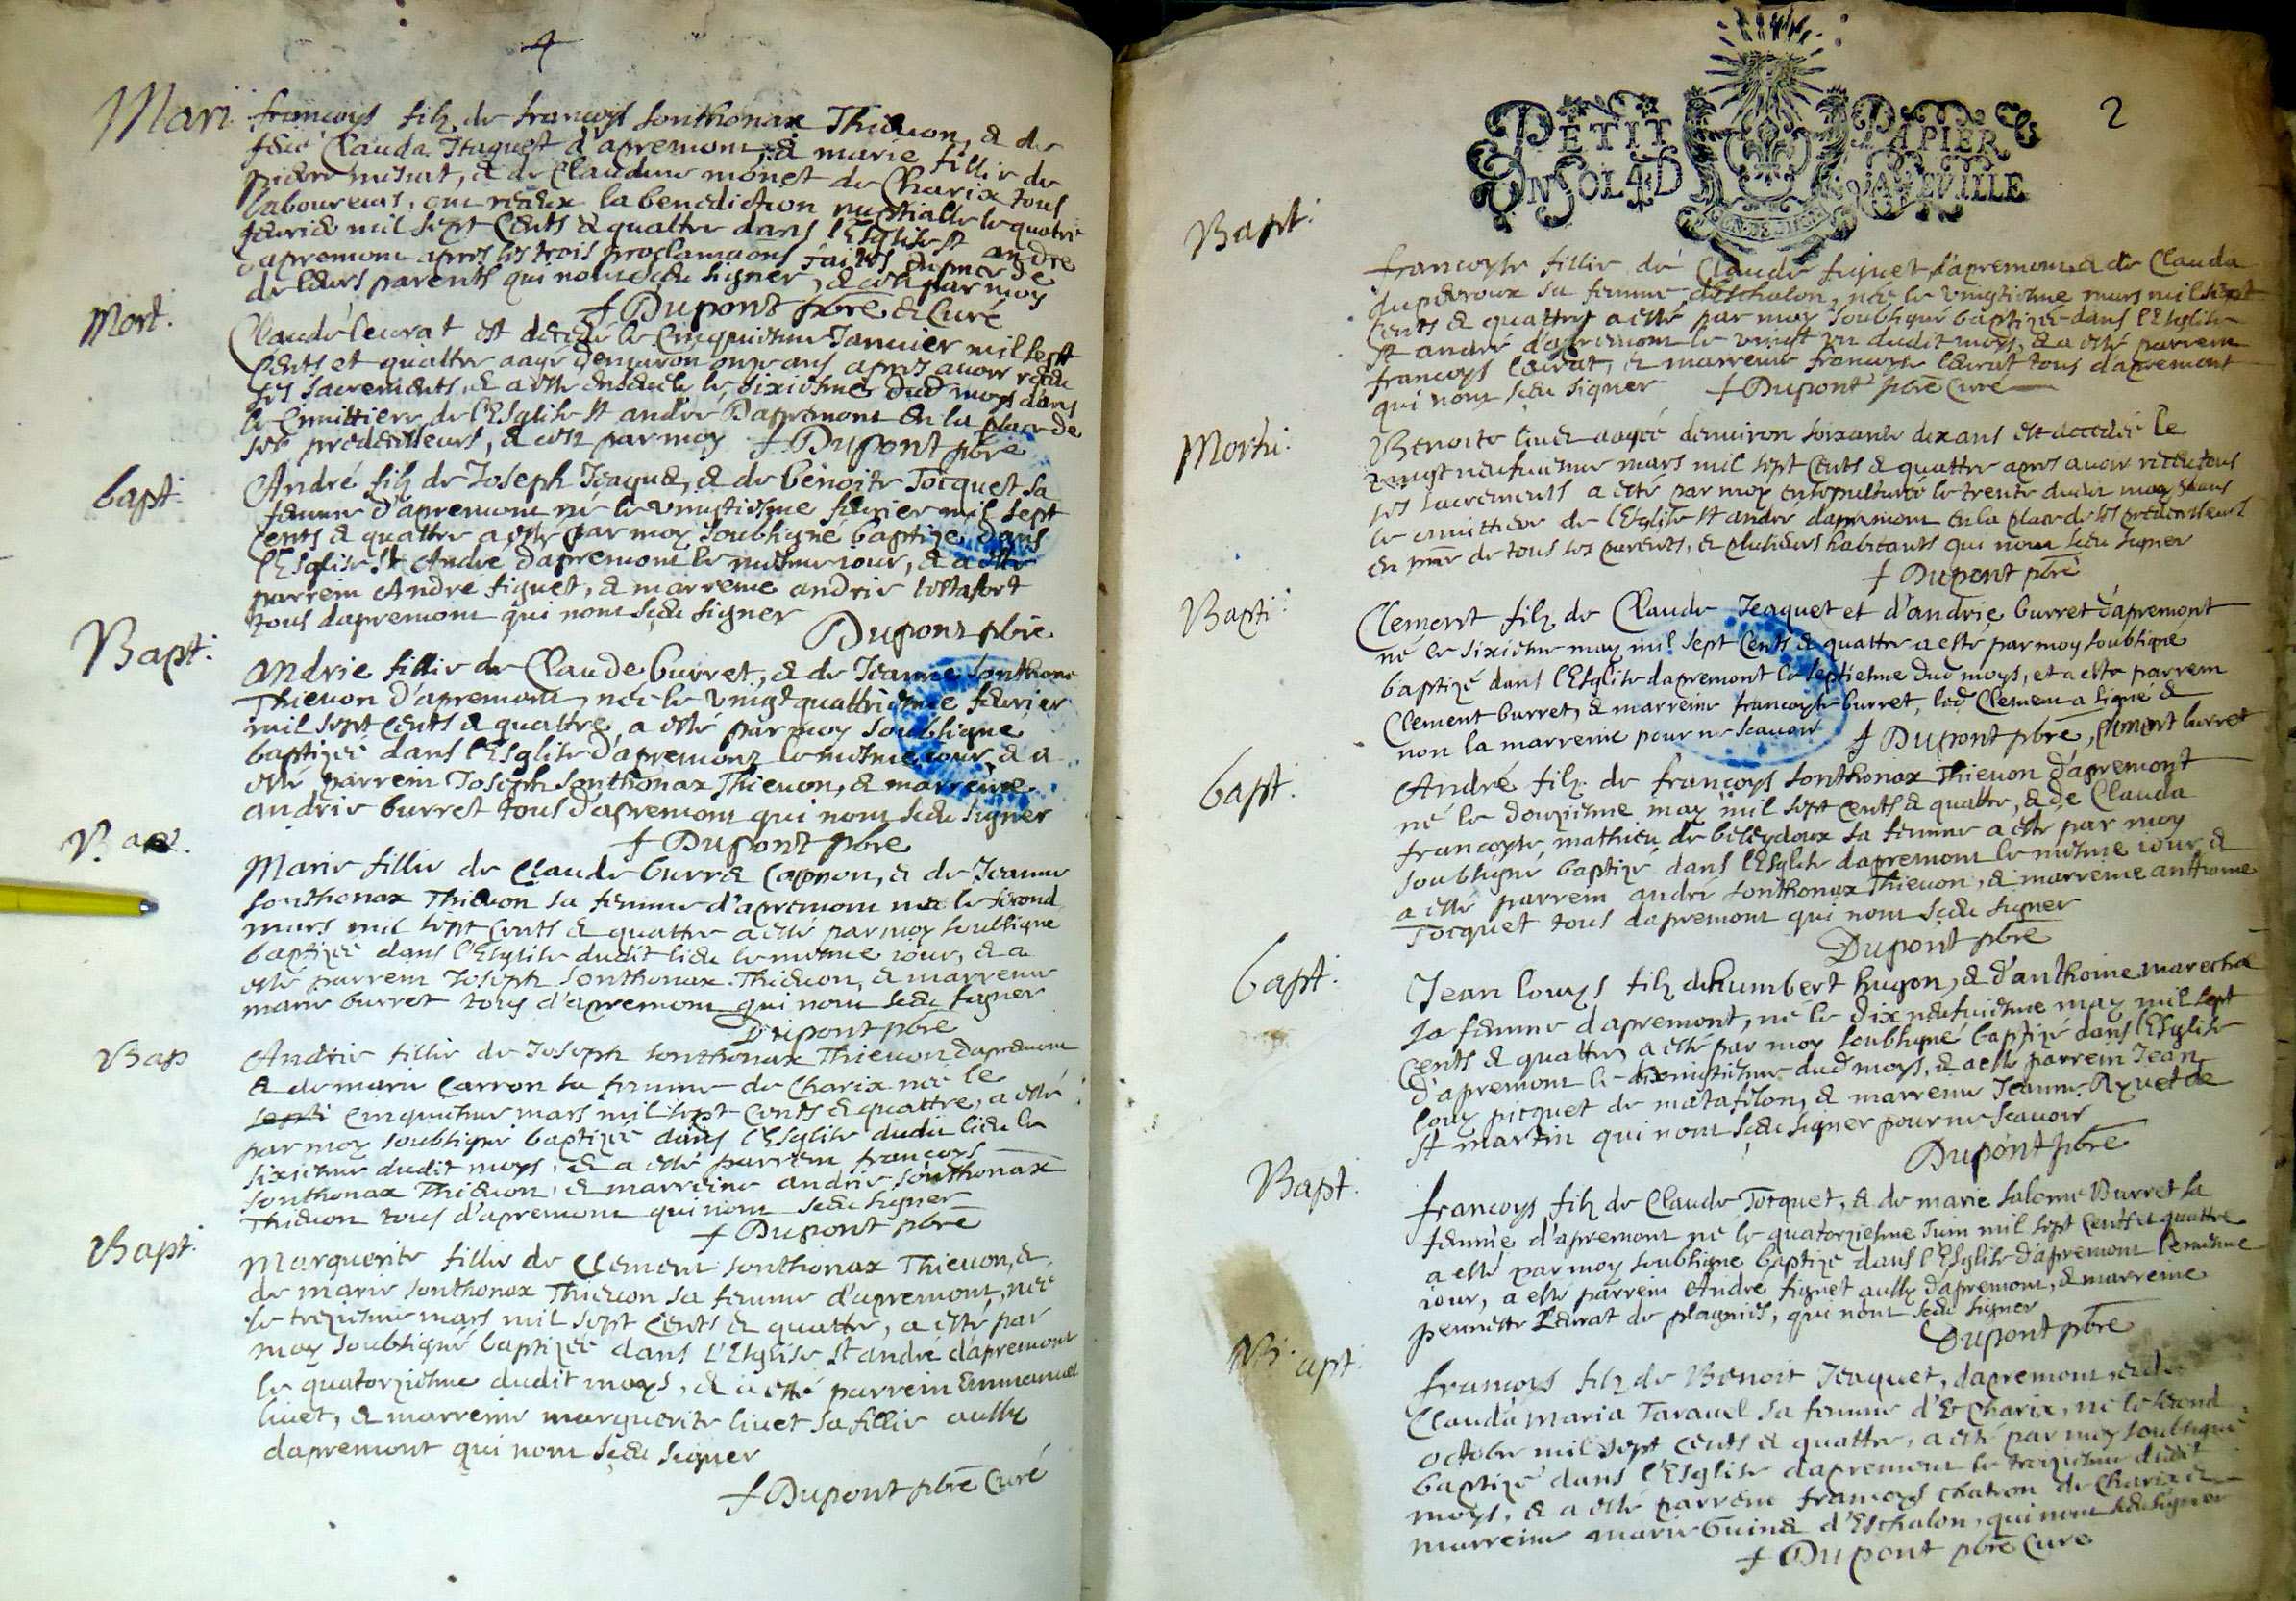 Mari
francoys filz de francoys sonthonax Thievon, & de
feüe Clauda Jtaquet d'apremont, & marie fillie de
pierre mermet, & de Claudine monet de Charix tous
laboureurs, ont receux la benediction nuptialle le quatri
fevrier mil sept Cents & quattre dans l'Esglise st andre
d'apremont apres les trois proclamaons faittes
de leurs parents qui nont sceu signer, & par moy
+ Dupont pbre & Curé
Mort.
Claude leurat est decede le Cinquiesme Januier mil sept
Cents et quattre aagé denuiron onze ans apres auoir receu
ses sacrements, & a esté le sixiesme dud moys dans
le Cimittiere de l'Esglise st andre Dapremont En la place de
ses predecesseurs, & par moy + Dupont pbre
bapt:
André filz de Joseph Jeaquet, & de benoite Tocquet sa
femme d'apremont né le vingtiesme feurier mil sept
Cents & quattre a esté par moy soubsigné baptizé dans
l'Esglise st Andre d'apremont le mesme iour, & a esté
parrein André figuet, & marreine andrie
tous dapremont qui nont sceu signer
Dupont pbre
Bapt:
andrie fillie de Claude burret, & de Jeanne sonthonax
Thievon d'apremont, née le vingt quattriesme feurier
mil sept cents & quattre, a esté par moy soubsigné
baptizée dans l'Esglise d'apremont le mesme iour, & a
esté parrein Joseph sonthonax Thievon, & marreine
andrie burret tous d'apremont qui nont sceu signer
+ Dupont pbre
Bapt.
Marie fillie de Claude burret Capon, & de Jeanne
sonthonax Thievon sa femme d'apremont née le second
mars mil sept cents & quattre a esté par moy soubsigné
baptizée dans l'Esglise dudit lieu le mesme iour, & a
esté parrein Joseph Sonthonax Thievon, & marreine
marie burret tous d'apremont qui nont sceu signer
Dupont pbre
Bap
Andrie fillie de Joseph sonthonax Thievon d'apremont
& de marie Carron sa femme de Charix née le
septi cinquiesme mars mil sept Cents & quattre, a esté
par moy soubsigné baptizée dans l'Esglise dudit lieu le
sixiesme dudit moys, & a esté parrein francoys
sonthonax Thievon, & marreine andrie sonthonax
Thievon tous d'apremont qui nont sceu signer
+ Dupont pbre
Bapt.
Marguerite fillie de Clement sonthonax Thievon, &
de marie sonthonax Thievon sa femme d'apremont, née
le treziesme mars mil sept Cents & quattre, a esté par
moy soubsigné baptizée dans l'Esglise st andre d'apremont
le quatorziesme dudit moys, & a esté parrein Emmanuel
liuet, & marreine marguerite liuet sa fillie aussy
dapremont qui nont sceu signer
+ Dupont pbre Curé
2
PETIT PAPIER
UN SOL 4 D LA FEVILLE
Bapt:
francoyse fillie de Claude figuet d'apremont & de Clauda
duperroux sa femme d'Eschalon, née le vingtiesme mars mil sept
Cents & quattre a esté par moy soubsigné baptizée dans l'Esglise
st andre d'apremont le vingt un dudit moys, & a esté parrein
francoys leurat, & marreine francoyse leurat tous d'apremont
qui nont sceu signer + Dupont pbre Curé
Mortu:
Benoite liuet aagée denuiron soixante dix ans est decedée le
vingt neufuiesme mars mil sept Cents & quattre apres auoir receu tous
ses sacrements a esté par moy ensepulturée le trente dudit moy dans
le cimittiere de l'Esglise st andré dapremont En la place de ses predecesseurs
en pnce de tous ses parents, & plusieurs habitants qui nont sceu signer
+ Dupont pbre
Bapti:
Clement filz de Claude Jeaquet et d'andrie burret d'apremont
né le sixiesme may mil sept Cents & quattre a esté par moy soubsigné
baptizé dans l'Esglise dapremont le septiesme dud moys, et a esté parrein
Clement burret, & marreine francoyse burret, led Clement a signé &
non la marreine pour ne scauoir + Dupont pbre, Clement burret
bapt.
André filz de francoys sonthonax Thievon d'apremont
né le douziesme may mil sept cents & quattre, & de Clauda
francoyse mathieu de beleydoux sa femme a esté par moy
soubsigné baptizé dans l'Esglise dapremont le mesme iour &
a esté parrein andré sonthonax Thievon, & marreine anthoine
Tocquet tous dapremont qui nont sceu signer
Dupont pbre
bapt:
Jean louys filz de humbert hugon, & d'anthoine marechal
sa femme dapremont, né le dix neufuiesme may mil sept
Cents & quattre, a esté par moy soubsigné baptizé dans l'Esglise
d'apremont le vingtiesme dud moys, & a esté parrein Jean
louys picquet de matafelon, & marreine Jeanne Ayuet de
st martin qui nont sceu signer pour ne scauoir
Dupont pbre
Bapt.
francoys filz de Claude Tocquet, & de marie salome Burret sa
femme d'apremont né le quatorziesme Juin mil sept Cents et quattre
a esté par moy soubsigné baptizé dans l'Esglise d'apremont le mesme
iour, a esté parrein André figuet aussy d'apremont, & marreine
pernette leurat de plagnies, qui nont sceu signer
Dupont pbre
Bapt:
francoys filz de Benoit Jeaquet, dapremont, & de
Clauda maria Tarauel sa femme d'Charix, né le second
octobre mil sept cents & quattre, a esté par moy soubsigné
baptizé dans l'Esglise dapremont le troiziesme dudit
moys, & a esté parrein francoys chatron de Charix &
marreine marie Guinet d'Eschalon, qui nont sceu signer
+ Dupont pbre Curé